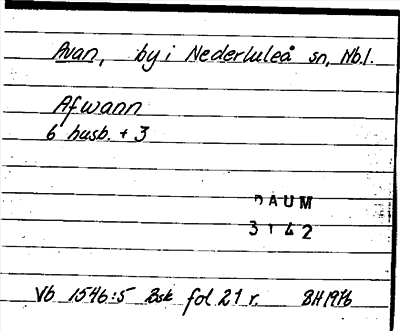 Avan, by i Nederluleå sn, Nb.l.
Afwann
6 husb. + 3
DAUM
3142
Vb 1546:5 Bsk fol 21 r. BH1976